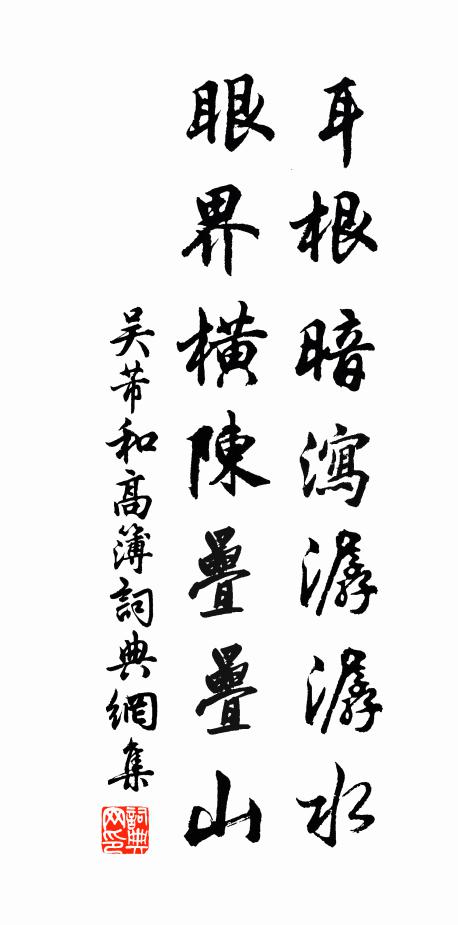 耳根暗瀉潺潺水
眼界橫陳疊疊山
吴芾和高簿詞典網集
詞典网印